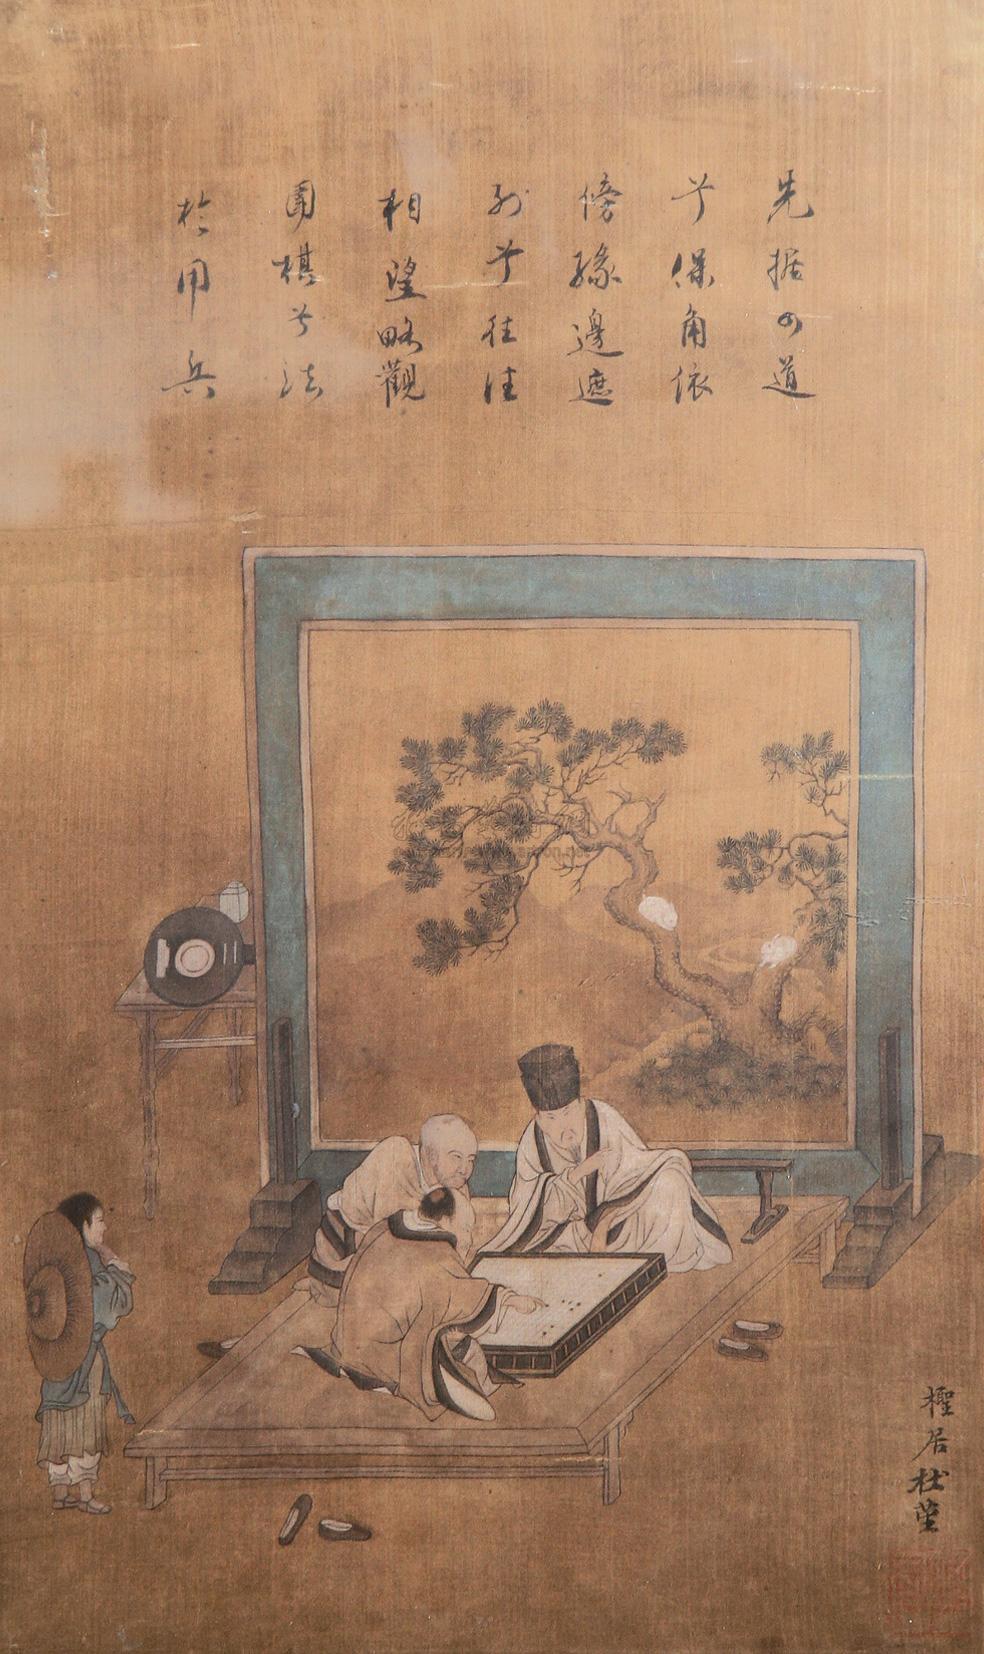 先据四道
兮保角依
傍緣邊遮
列兮往往
相望略觀
圍棋兮法
於用兵
檉居杜堇